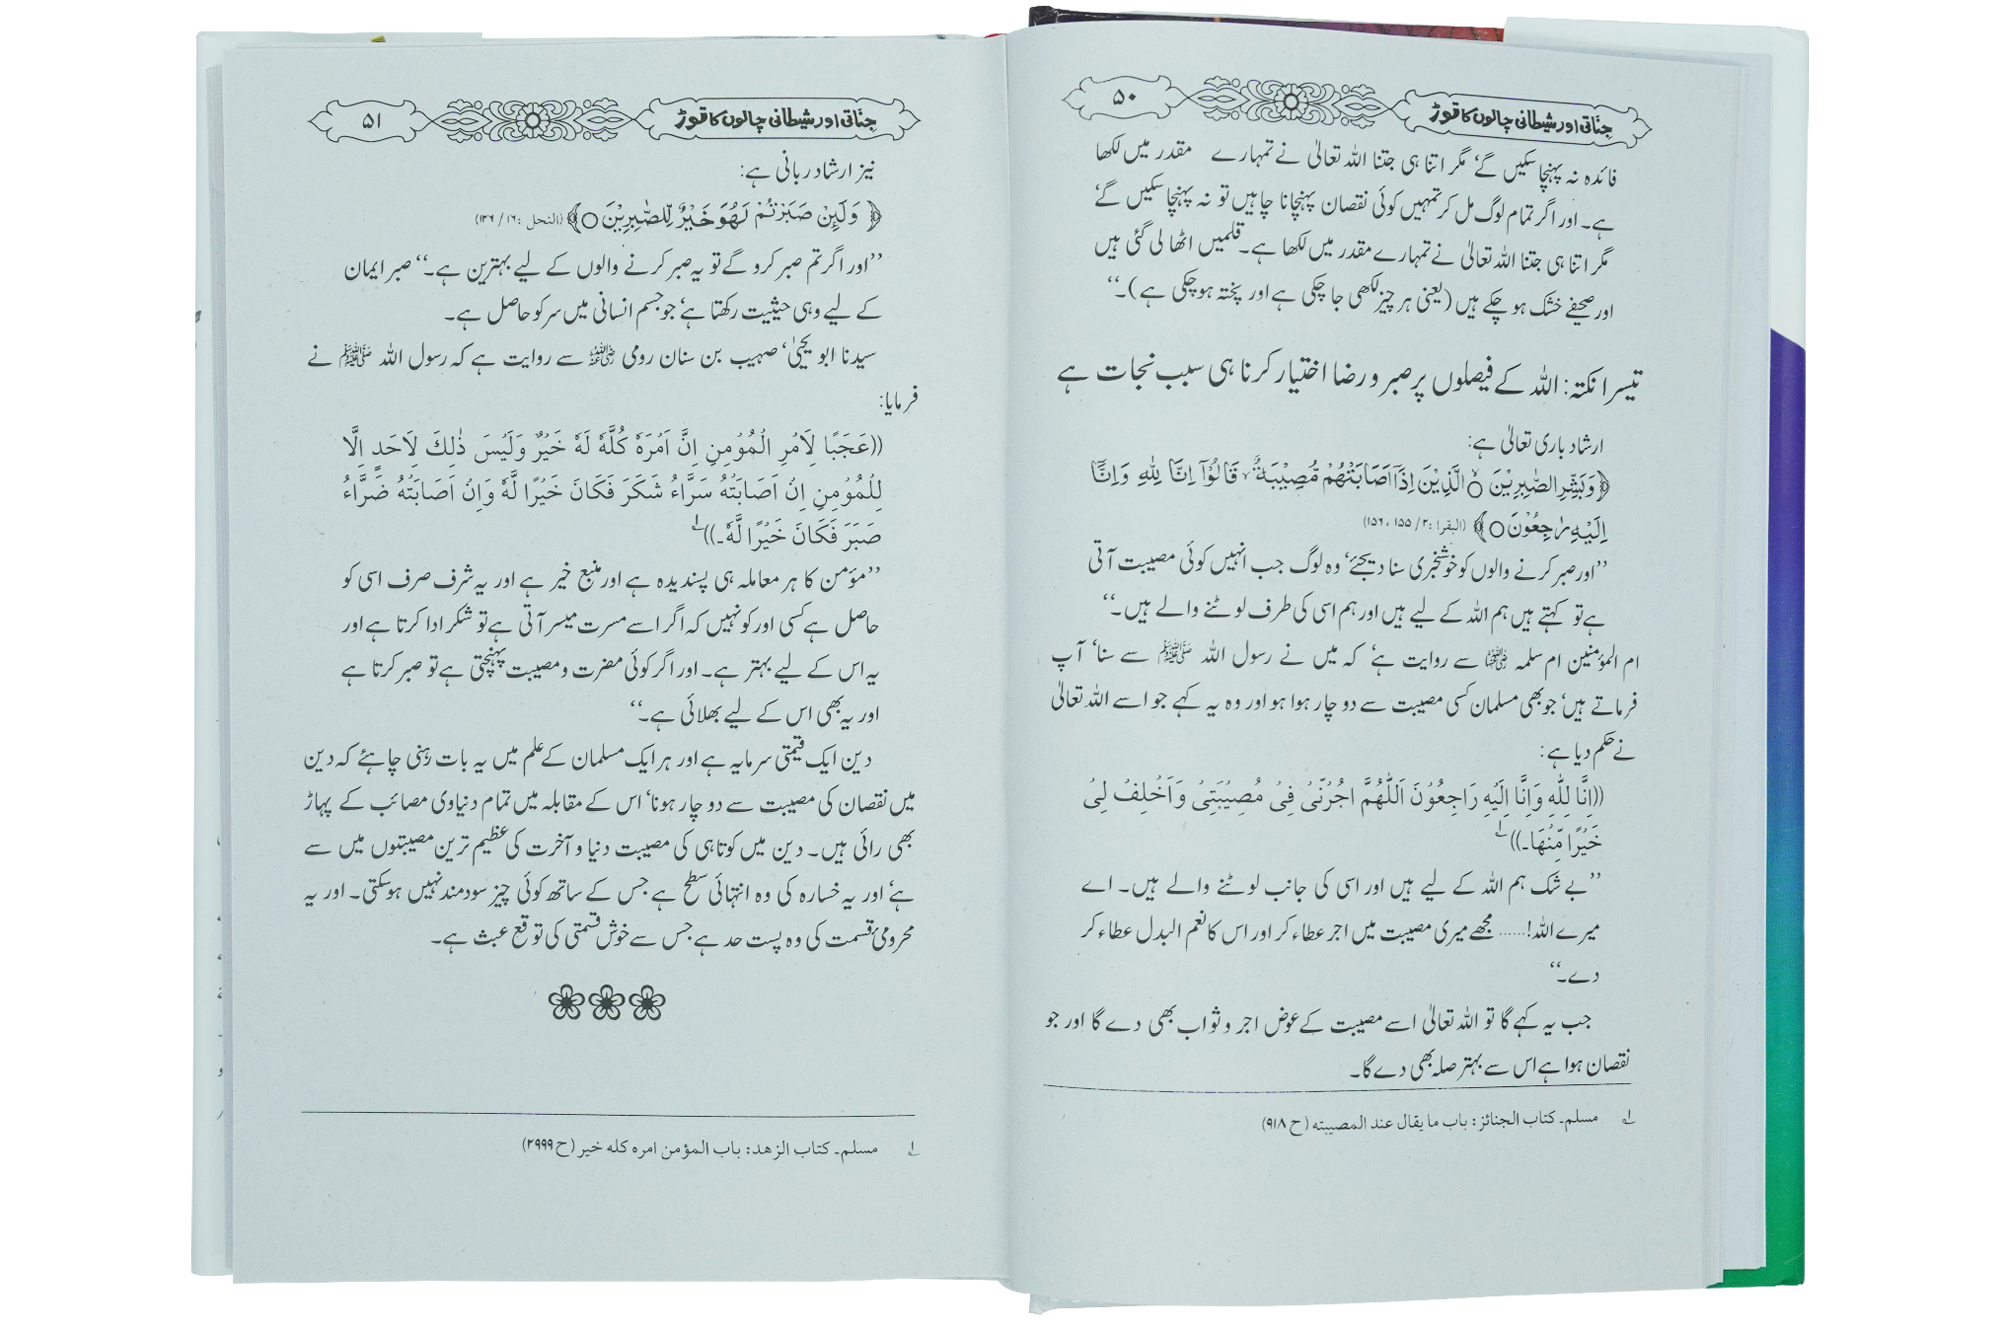 جناتی اور شیطانی چالوں کا توڑ
۵۰
فائدہ نہ پہنچا سکیں گے‘ مگر اتنا ہی جتنا اللہ تعالیٰ نے تمہارے مقدر میں لکھا
ہے۔ اور اگر تمام لوگ مل کر تمہیں کوئی نقصان پہنچانا چاہیں تو نہ پہنچا سکیں گے‘
مگر اتنا ہی جتنا اللہ تعالیٰ نے تمہارے مقدر میں لکھا ہے۔ قلمیں اٹھا لی گئی ہیں
اور صحیفے خشک ہو چکے ہیں (یعنی ہر چیز لکھی جا چکی ہے اور پختہ ہو چکی ہے)۔‘‘
تیسرا نکتہ: اللہ کے فیصلوں پر صبر و رضا اختیار کرنا ہی سبب نجات ہے
ارشاد باری تعالیٰ ہے:
﴿وَبَشِّرِ الصّٰبِرِيْنَ ۝ الَّذِيْنَ اِذَآ اَصَابَتْهُمْ مُّصِيْبَةٌ ۙ قَالُوْٓا اِنَّا لِلّٰهِ وَاِنَّآ
اِلَيْهِ رٰجِعُوْنَ ۝﴾ (البقرا :۲/ ۱۵۵، ۱۵۶)
’’اور صبر کرنے والوں کو خوشخبری سنا دیجئے‘ وہ لوگ جب انہیں کوئی مصیبت آتی
ہے تو کہتے ہیں ہم اللہ کے لیے ہیں اور ہم اسی کی طرف لوٹنے والے ہیں۔‘‘
ام المؤمنین ام سلمہ رضی اللہ عنہا سے روایت ہے‘ کہ میں نے رسول اللہ ﷺ سے سنا‘ آپ
فرماتے ہیں‘ جو بھی مسلمان کسی مصیبت سے دو چار ہوا ہو اور وہ یہ کہے جو اسے اللہ تعالیٰ
نے حکم دیا ہے:
((اِنَّا لِلّٰهِ وَاِنَّا اِلَيْهِ رَاجِعُوْنَ اَللّٰهُمَّ اجُرْنِّىْ فِىْ مُصِيْبَتِىْ وَاَخْلِفْ لِىْ
خَيْرًا مِّنْهَا۔)) ۱؎
’’بے شک ہم اللہ کے لیے ہیں اور اسی کی جانب لوٹنے والے ہیں۔ اے
میرے اللہ!...... مجھے میری مصیبت میں اجر عطاء کر اور اس کا نعم البدل عطاء کر
دے۔‘‘
جب یہ کہے گا تو اللہ تعالیٰ اسے مصیبت کے عوض اجر و ثواب بھی دے گا اور جو
نقصان ہوا ہے اس سے بہتر صلہ بھی دے گا۔
۱؎ مسلم۔ کتاب الجنائز: باب ما یقال عند المصیبتہ (ح ۹۱۸)
جناتی اور شیطانی چالوں کا توڑ
۵۱
نیز ارشاد ربانی ہے:
﴿وَلَئِنْ صَبَرْتُمْ لَهُوَ خَيْرٌ لِّلصّٰبِرِيْنَ ۝﴾ (النحل :۱۶/ ۱۲۶)
’’اور اگر تم صبر کرو گے تو یہ صبر کرنے والوں کے لیے بہترین ہے۔‘‘ صبر ایمان
کے لیے وہی حیثیت رکھتا ہے‘ جو جسم انسانی میں سر کو حاصل ہے۔
سیدنا ابو یحییٰ‘ صہیب بن سنان رومی رضی اللہ عنہ سے روایت ہے کہ رسول اللہ ﷺ نے
فرمایا:
((عَجَبًا لِاَمْرِ الْمُؤْمِنِ اِنَّ اَمْرَهٗ كُلَّهٗ لَهٗ خَيْرٌ وَلَيْسَ ذٰلِكَ لِاَحَدٍ اِلَّا
لِلْمُؤْمِنِ اِنْ اَصَابَتْهُ سَرَّاءُ شَكَرَ فَكَانَ خَيْرًا لَّهٗ وَاِنْ اَصَابَتْهُ ضَرَّاءُ
صَبَرَ فَكَانَ خَيْرًا لَّهٗ۔)) ۱؎
’’مؤمن کا ہر معاملہ ہی پسندیدہ ہے اور منبع خیر ہے اور یہ شرف صرف اسی کو
حاصل ہے کسی اور کو نہیں کہ اگر اسے مسرت میسر آتی ہے تو شکر ادا کرتا ہے اور
یہ اس کے لیے بہتر ہے۔ اور اگر کوئی مضرت و مصیبت پہنچتی ہے تو صبر کرتا ہے
اور یہ بھی اس کے لیے بھلائی ہے۔‘‘
دین ایک قیمتی سرمایہ ہے اور ہر ایک مسلمان کے علم میں یہ بات رہنی چاہئے کہ دین
میں نقصان کی مصیبت سے دو چار ہونا‘ اس کے مقابلہ میں تمام دنیاوی مصائب کے پہاڑ
بھی رائی ہیں۔ دین میں کوتاہی کی مصیبت دنیا و آخرت کی عظیم ترین مصیبتوں میں سے
ہے‘ اور یہ خسارہ کی وہ انتہائی سطح ہے جس کے ساتھ کوئی چیز سود مند نہیں ہو سکتی۔ اور یہ
محرومیٔ قسمت کی وہ پست حد ہے جس سے خوش قسمتی کی توقع عبث ہے۔
۱؎ مسلم۔ کتاب الزھد: باب المؤمن امرہ کلہ خیر (ح ۲۹۹۹)